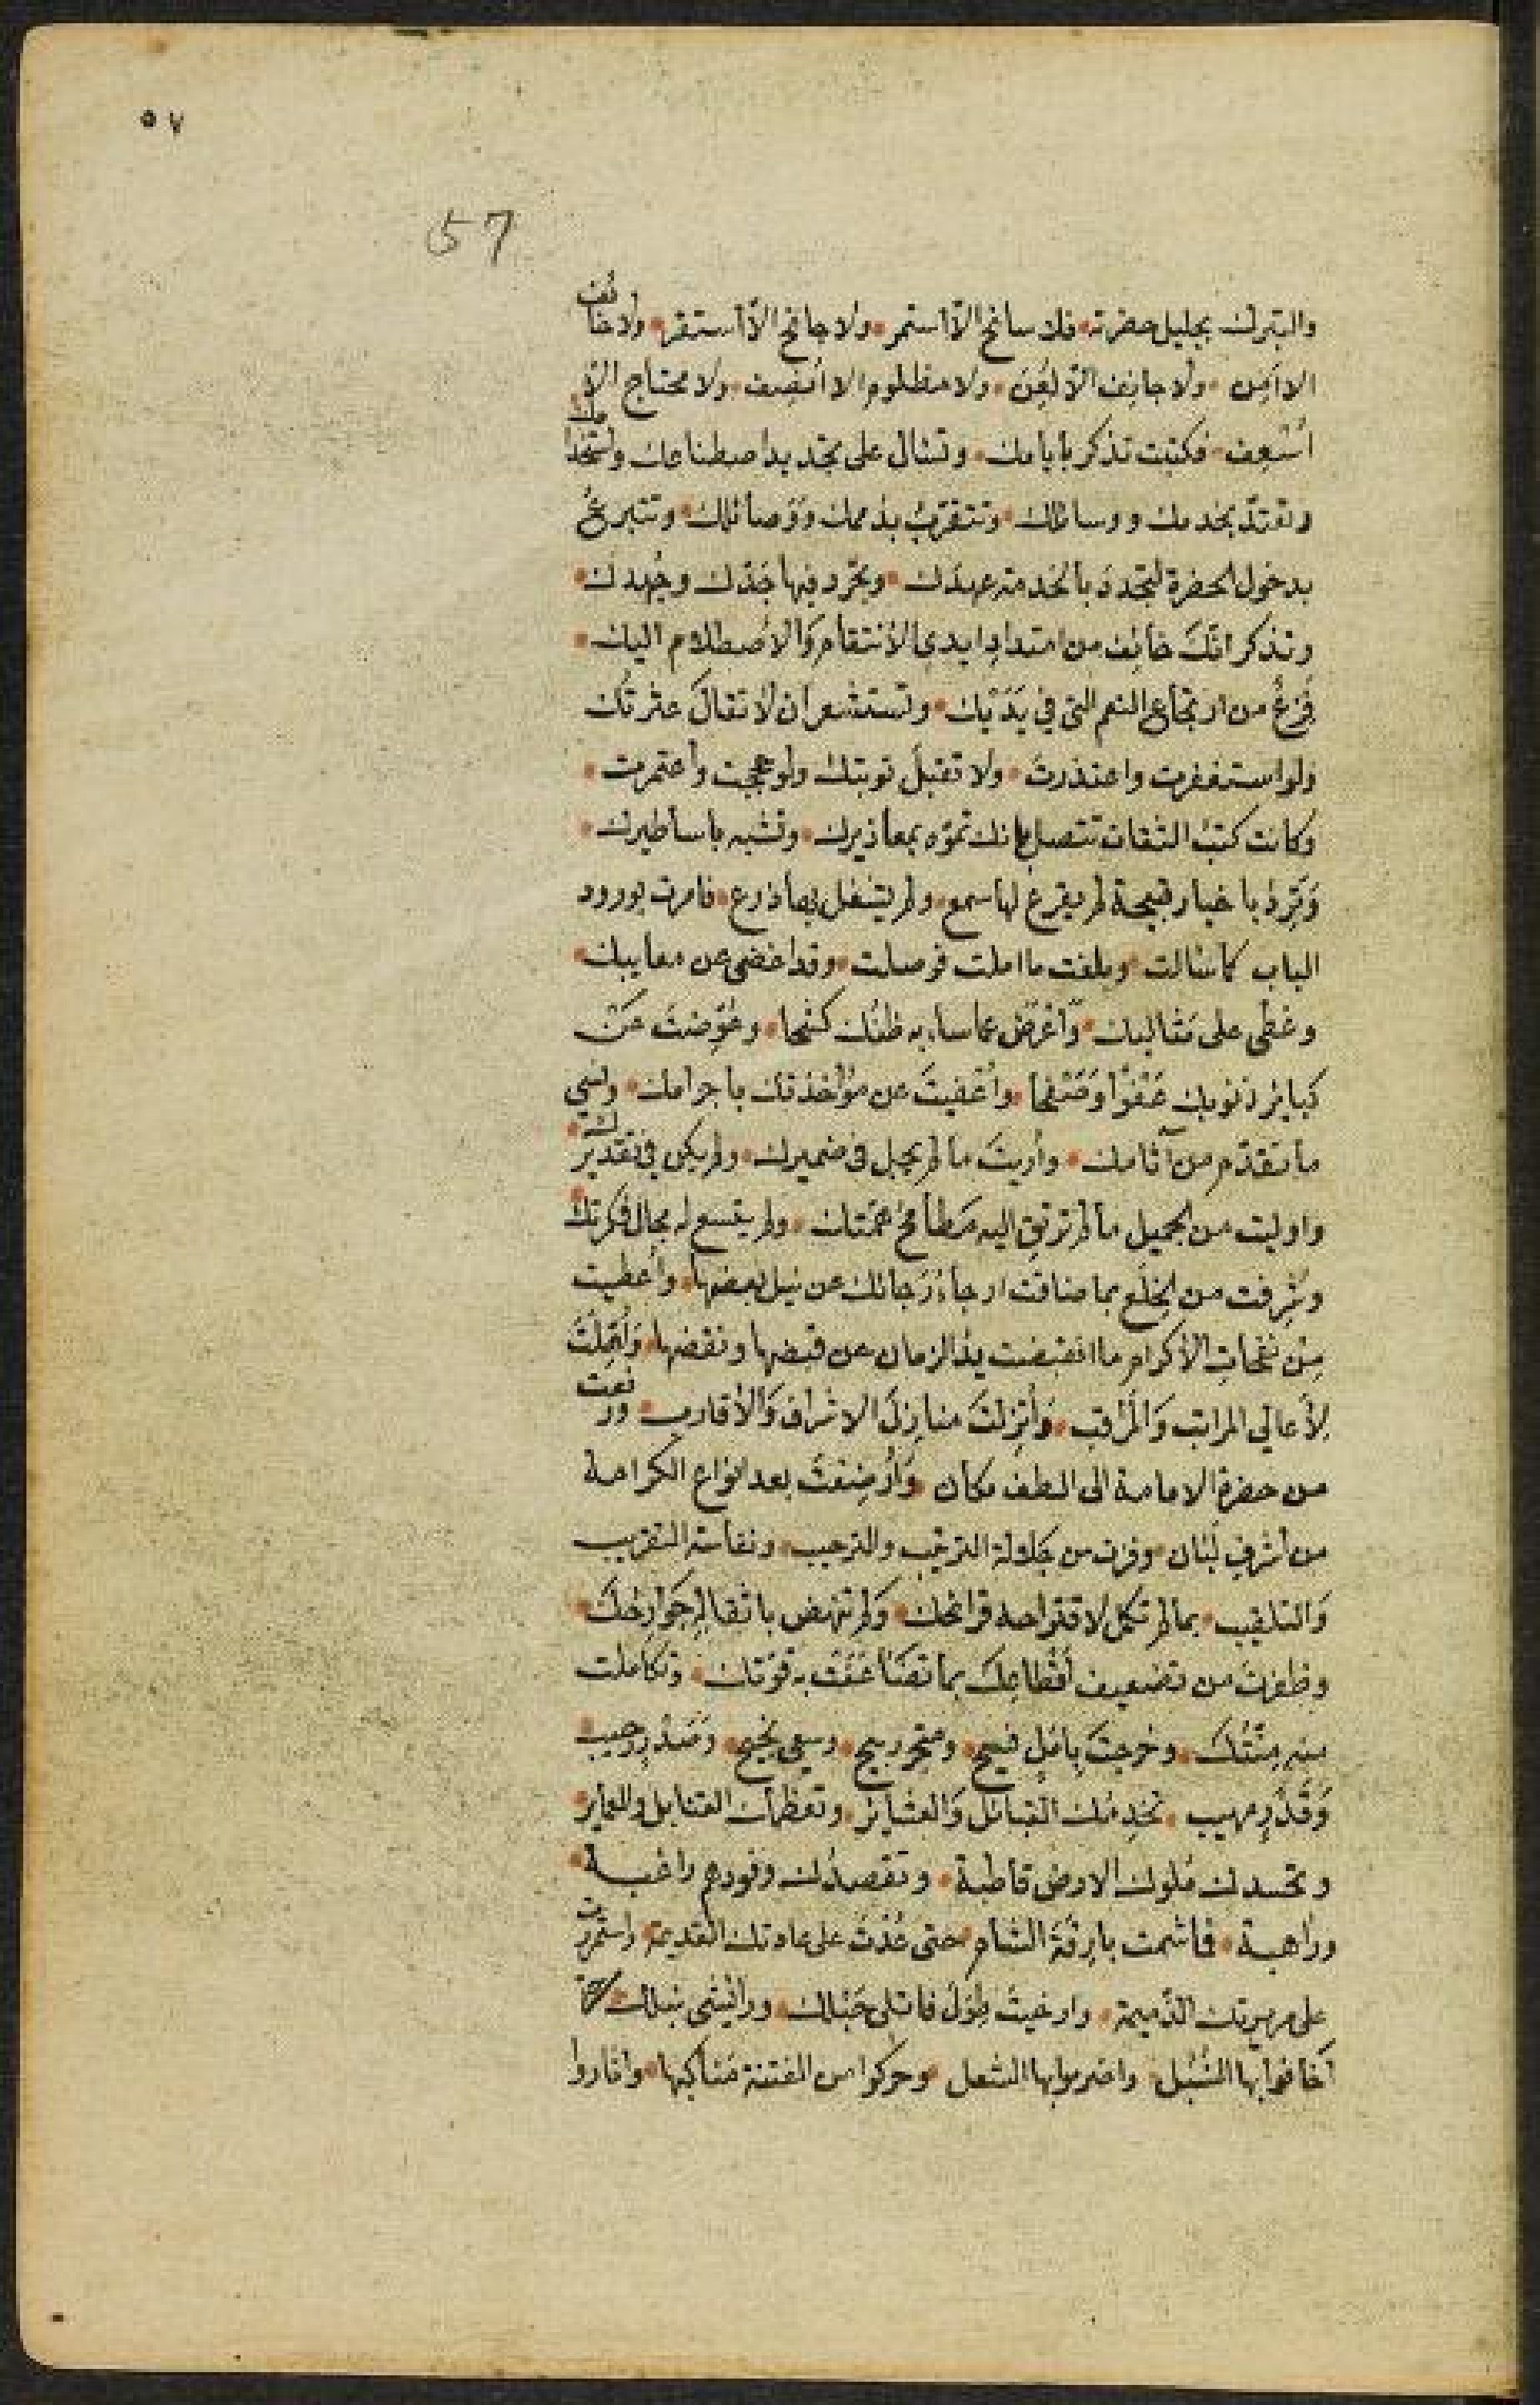 ٥٧
57
والتبرك بجليل حضرته فلا سانح الا استمر ولا جانح الا استقر ولا خائف
الا اَمِن ولا جانف الا لُعِن ولا مظلوم الا اُنصِف ولا محتاج الا
اُسْعِف فكتبت تذكر بايامك وتسأل على تجديد اصطناعك واستخدامك
وتعتدّ بخدمك ووسائلك وتتقرّبُ بذممك ووَصائلك وتتبرعُ
بدخول الحضرة لتجدد بالخدمة عهدَك وتجرّد فيها جَدّك وجُهدك
وتذكر انّكَ خائف من امتداد ايدي الانتقام وَالاصطلام اليك
فَزِعٌ من ارتجاع النعم التي في يَدَيْك وتستشعر ان لا تقالَ عثرتُك
ولو استغفرت واعتذرتَ ولا تقبلَ توبتك ولو حججت واعتمرت
وكانت كتبُ الثقات تتصل بانك تموّه بمعاذيرك وتشبه باساطيرك
وَتَرِدُ باخبار قبيحة لم يقرع لها سمع ولم يشغل بها ذرع فامرت بورود
الباب كما سألت وبلغت ما املت فوصلت وقد اغضى عن معايبك
وغطى على مثالبك وَاَعْرَض عما ساء به ظنُّك كشحا وعُوّضتَ عَنْ
كبائر ذنوبك عَفْوًا وَصَفْحًا واُعْفيتَ عن مؤاخذتك باجرامك ونسي
ما تقدّم من آثامك واُريتَ ما لم يجل في ضميرك ولم يكن في تقديرك
واوليت من الجميل ما لم ترتقِ اليه مَطامح همّتك ولم يتسع له مجال فكرتك
وشُرفت من الخِلَع بما ضاقت ارجاء رَجائك عن نيل بعضها واُعطيت
مِنْ نفحات الاكرام ما انقبضت يدُ الزمان عن قبضها ونقضها وَاُهِّلْتَ
لِاَعالي المراتب وَالمراقب وَاُنزِلتَ منازِلَ الاشراف وَالاقارب ورفعت
من حضرة الامامة الى الطف مكان وَاُرضِعتَ بعد انواع الكرامة
من اشرفِ لبان وفزت من جَلالة الترتيب والترحيب ونفاسة التقريب
وَالتلقيب بما لم تكمل لاقتراحه قرائحك وَلم تنهض باثقالِه جَوارِحُكَ
وظفرتَ من تضعيف اَقْطاعِكَ بما تضَاعَفَت به قوّتك وتكاملت
منه مِنَّتُكَ وخرجتَ بامَلٍ فسيح ومتجر ربيح وسعي نجيح وصَدْرٍ رحيب
وَقَدْرٍ مهيب تخدِمُك القبائل وَالعشائر وتعظمك القنابل والعماير
وتحسدك مُلوك الارض قاطبة وتقصدُك وفودهم راغبة
وراهبة فما شمت بارِقَةَ الشام حتى عُدْتَ على عادتك القديمة واستمررت
على مريرتك الذميمة وارخيتَ طِوَلَ فاتلي حَبْلك ورائشي نبلك حتى
اَخافوا بها السُبُل واضرموا بها الشعل وحركوا من الفتنة مَناكبها واثاروا